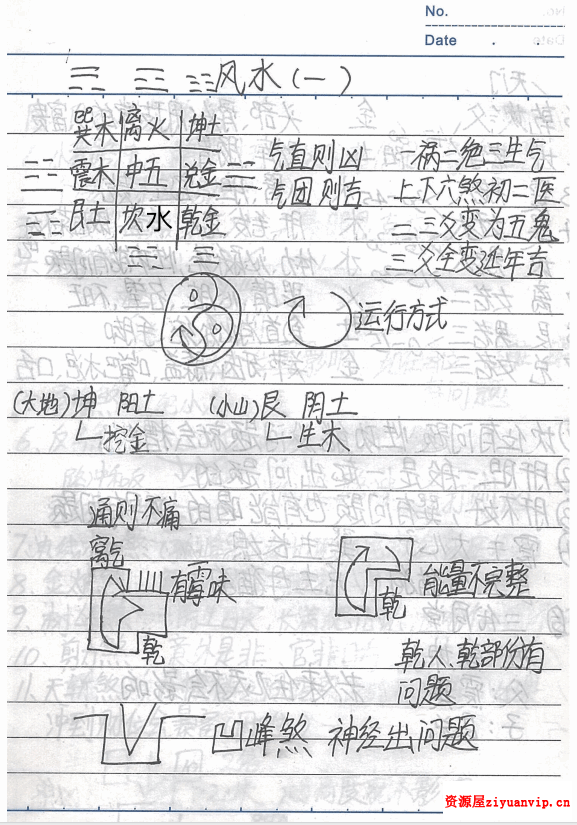 No.
Date
风水(一)
巽木 离火 坤土
震木 中五 兑金
艮土 坎水 乾金
气直则凶 一祸二绝三生气
气团则吉 上下六煞初二医
二三爻变为五鬼
三爻全变延年吉
运行方式
(大地)坤 阳土 (小山)艮 阴土
挖金 生木
通则不痛
离气
有霉味
乾
乾
能量不完整
乾人、乾部份有
问题
凹峰煞 神经出问题
资源屋ziyuanvip.cn